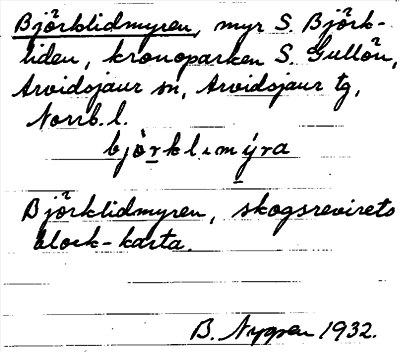 Björklidmyren, myr S. Björk-
liden, kronoparken S. Gullön,
Arvidsjaur sn, Arvidsjaur tg,
Norrb. l.
bjòrklımýra
Björklidmyren, skogsrevirets
block-karta.
B. Nygren 1932.